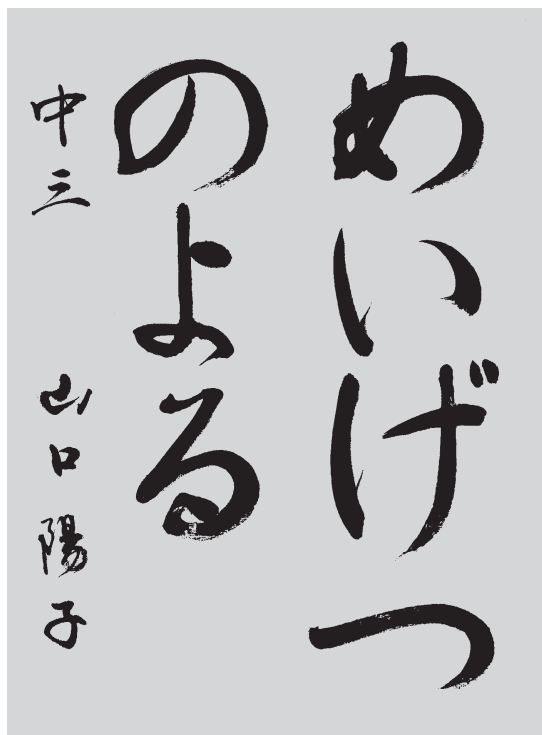 めいげつ
のよる
中三 山口陽子